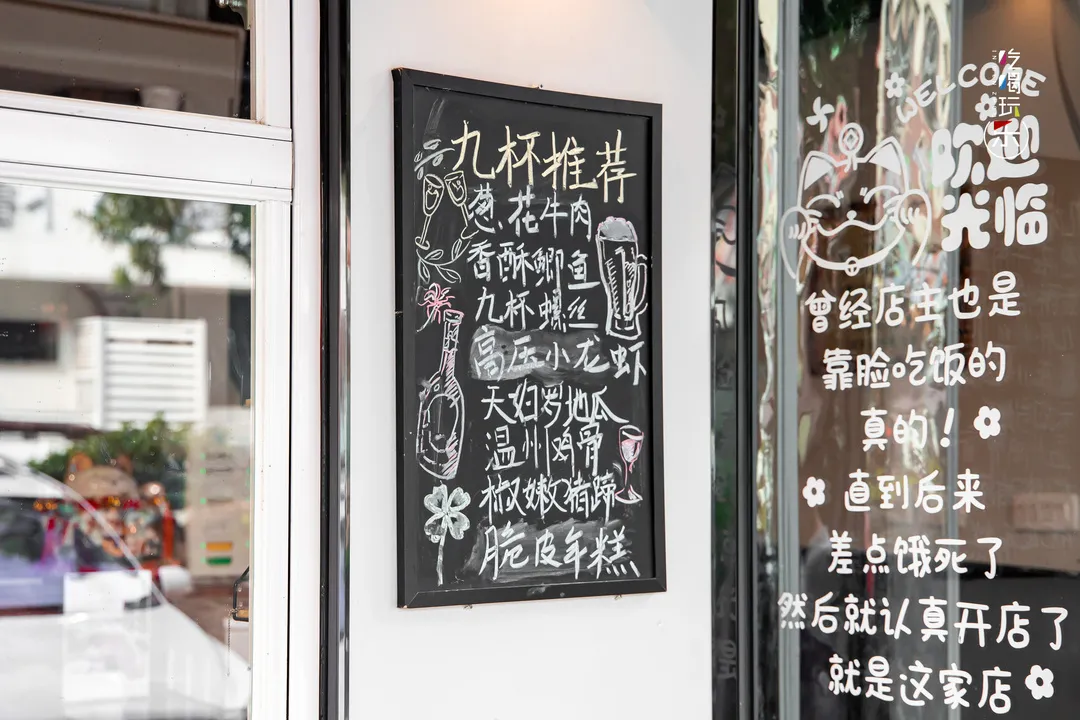 九杯推荐
葱花牛肉
香酥鲫鱼
九杯螺丝
高压小龙虾
天妇罗地瓜
温州鸡骨
椒嫩猪蹄
脆皮年糕
WELCOME
欢迎
光临
曾经店主也是
靠脸吃饭的
真的！
直到后来
差点饿死了
然后就认真开店了
就是这家店
吃喝玩乐